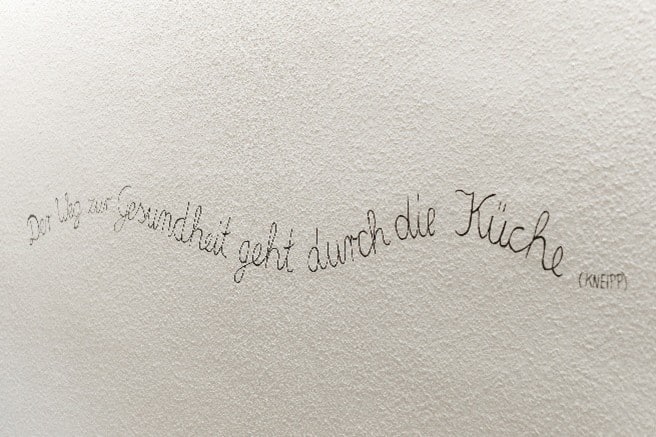 Der Weg zur Gesundheit geht durch die Küche
(KNEIPP)